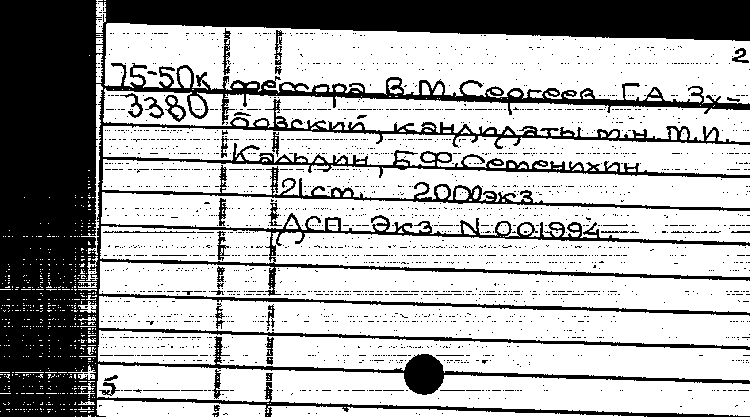 2
75-50к фессора В.М.Сергеев, Г.А. Зу-
3380 бовский, кандидаты т.н. М.И.
Кальдин, Б.Ф.Сетенихин.
21 ст. 2000экз.
ДСП. Экз. N 001994.
5